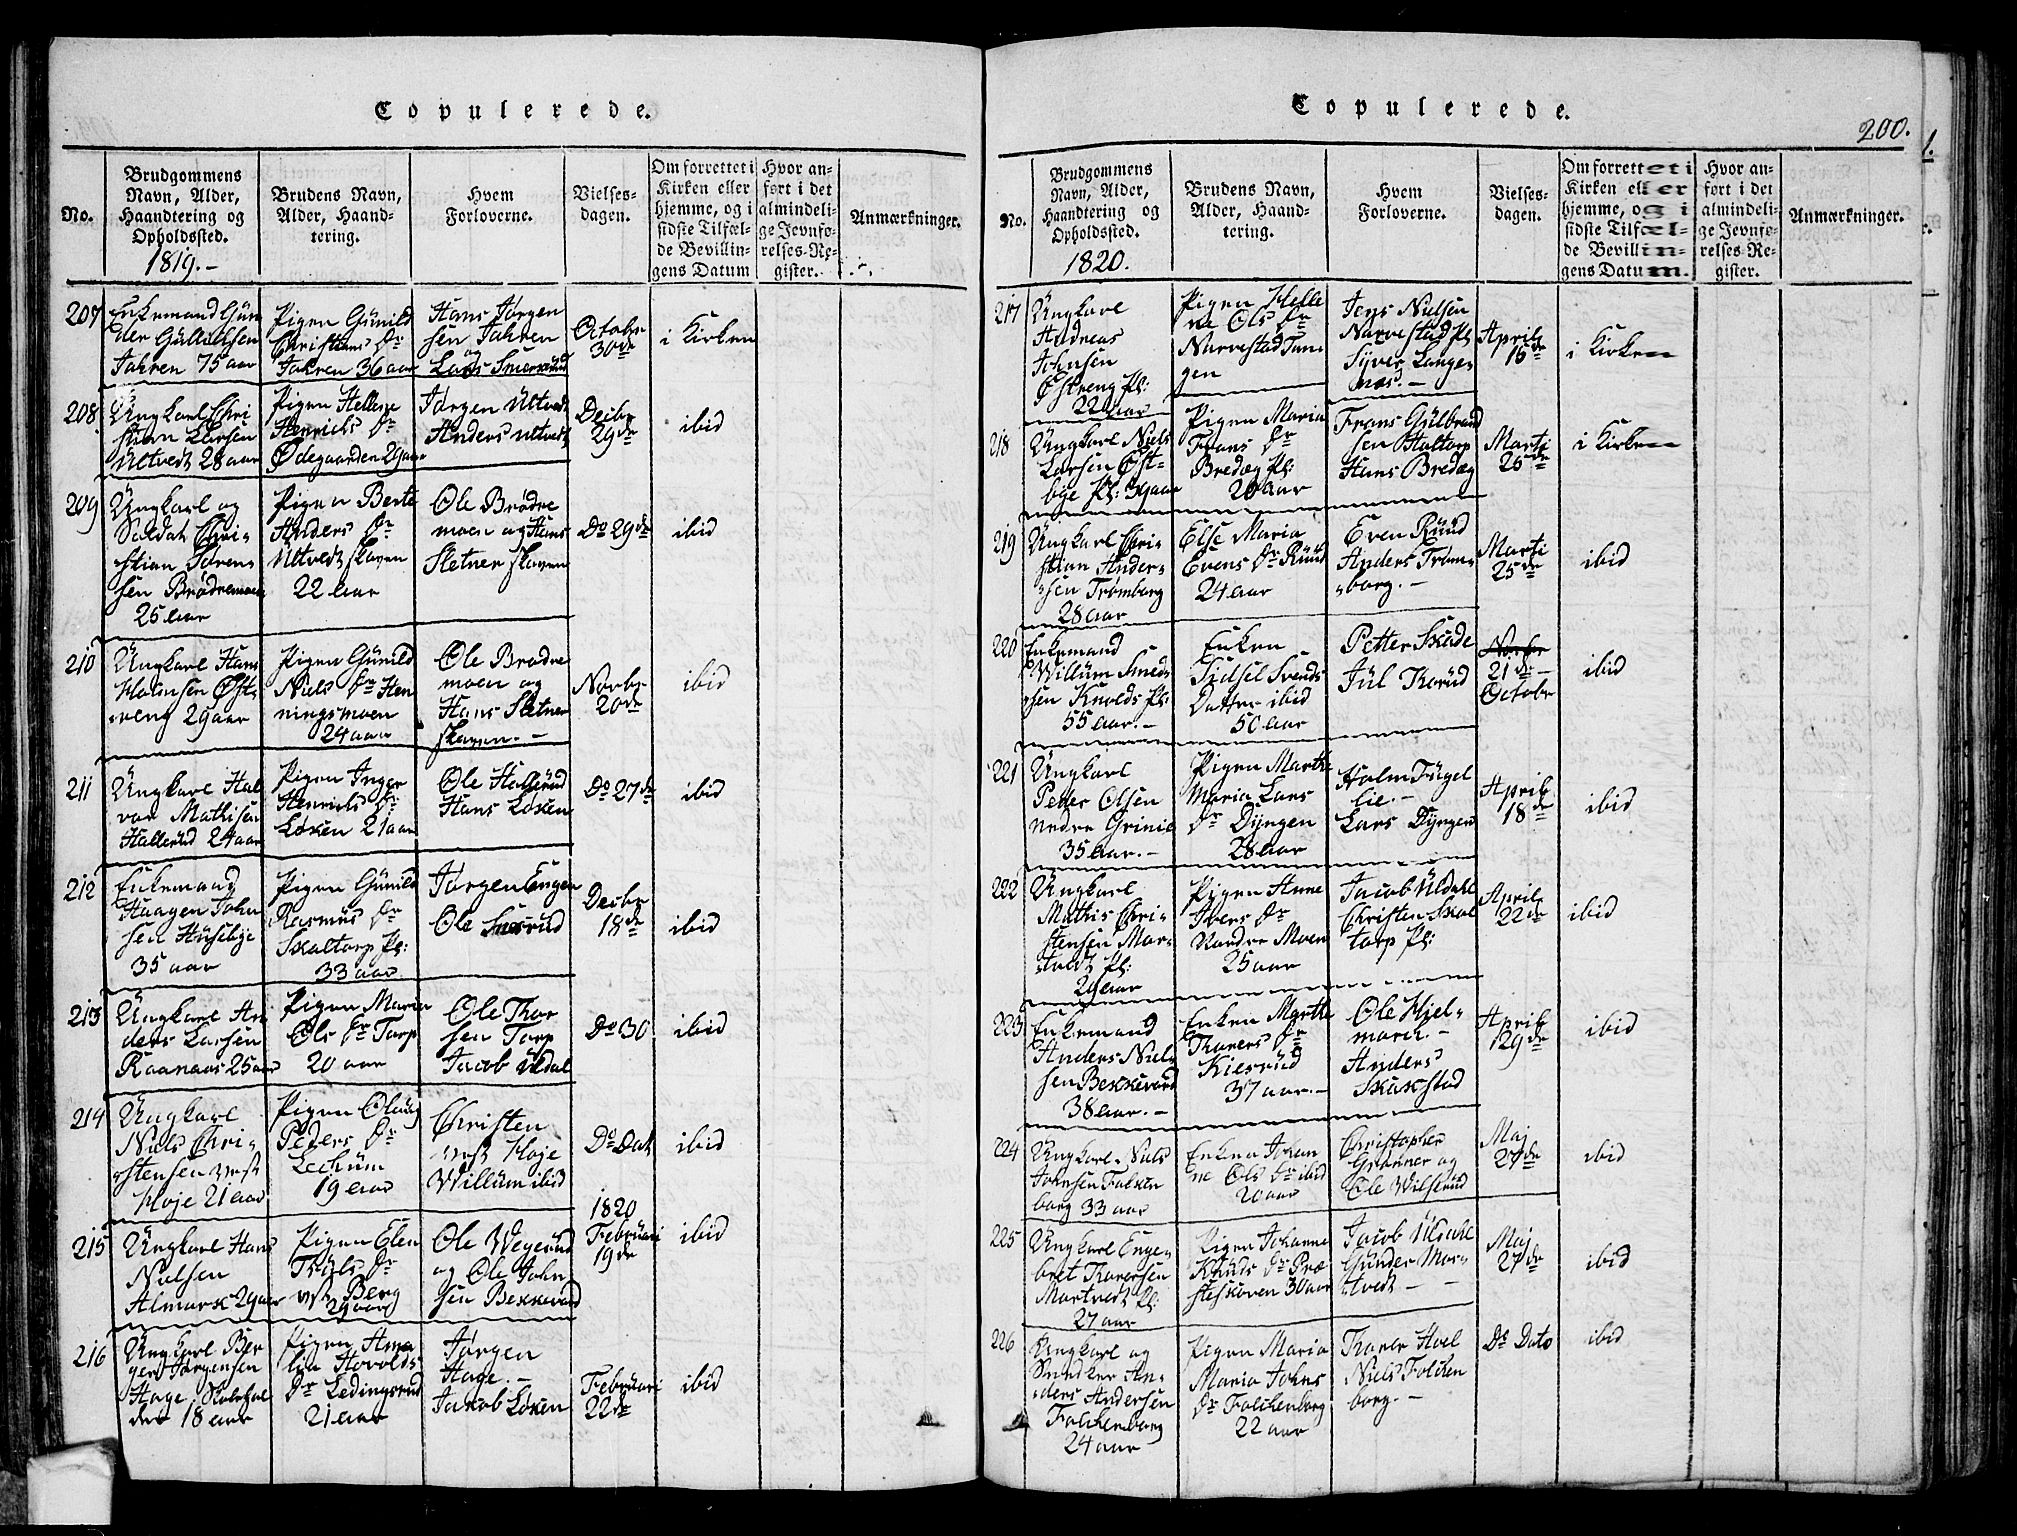 Copulerede.
No.
Brudgommens
Navn, Alder,
Haandtering og
Opholdssted.
1819.-
Brudens Navn,
Alder, Haand-
tering.
Hvem
Forloverne.
Vielses-
dagen.
Om forrettet i
Kirken eller
hjemme, og i
sidste Tilfæl-
de Bevillin-
gens Datum
Hvor an-
ført i det
almindeli-
ge Jevnfø-
relses-Re-
gister.
Anmærkninger.
207
Enkemand Gun
der Gulbrdsen
Jahren 75 aar
Pigen Gunild
Christians Dr
Jahren 36 aar
Hans Jørgen
sen Jahren
og
Lars Smerud
Octobr
30de
i Kirken
208
Ungkarl Chri
stian Larsen
Ultvedt 28 aar
Pigen Hellene
Henrichs Dr
Ødegaarden 29 aar
Jørgen Ultvedt
Anders Ultvedt
Decbr
29de
ibid
209
Ungkarl og
Soldat Chri-
stian Søren-
sen Brødremoen
25 aar
Pigen Berte
Anders Dr
Ultvedt skoven
22 aar
Ole Brødre
moen og Hans
Sletner skoven
Do 29de
ibid
210
Ungkarl Hans
Holmsen Øst-
reng 29 aar
Pigen Gunild
Niels Dr Hen
ningsmoen
24 aar
Ole Brødre
moen og
Hans Sletner
skoven.-
Novbr
20de
ibid
211
Ungkarl Hal
vor Mathisen
Hallerud 24 aar
Pigen Inger
Henrichs Dr
Løken 21 aar
Ole Hallerud
Hans Løken
Do 27de
ibid
212
Enkemand
Haagen John
sen Huseby
35 aar
Pigen Gunild
Rasmus Dr
Skaltorp Pl:
33 aar.
Jørgen Engen
Ole Smerud
Decbr
18de
ibid
213
Ungkarl An
ders Larsen
Raanaas 25 aar
Pigen Maria
Ols Dr Torp
20 aar
Ole Thor
sen Torp
Jacob Uldal
Do 30
ibid
214
Ungkarl
Niels Chri-
stensen vest
Høje 21 aar
Pigen Olaug
Peders Dr
Lechum
19 aar
Christen
vest Høje
Willum ibid
Do Dat
ibid
1820
215
Ungkarl Hans
Nielsen
Almark 29 aar
Pigen Elen
Truls Dr
Berg
29 aar
Ole Wegerud
og Ole John
sen Bekkevard
Februari
19de
ibid
216
Ungkarl Ber
ger Jørgensen
Hage, Skolehol
der 18 aar
Pigen Ama
lia Havolds
Dr Ledingsrud
21 aar
Jørgen
Hage.-
Jakob Løken
Februari
22de
ibid
Copulerede.
200.
No.
Brudgommens
Navn, Alder,
Haandtering og
Opholdssted.
1820.
Brudens Navn,
Alder, Haand-
tering.
Hvem
Forloverne.
Vielses-
dagen.
Om forrettet i
Kirken eller
hjemme, og i
sidste Tilfæl-
de Bevillin-
gens Datum.
Hvor an-
ført i det
almindeli-
ge Jevnfø-
relses-Re-
gister.
Anmærkninger.
217
Ungkarl
Andreas
Johnsen
Østreng Pl:
22 aar
Pigen Helle
ne Ols Dr
Narvestad Tan-
gen
Jens Nielsen
Narvestad Pl
Syver Lange-
næs.-
Aprili
16de
i Kirken
218
Ungkarl Niels
Larsen Øst-
bye Pl: 34 aar
Pigen Maria
Frans Dr
Bredæg Pl:
20 aar
Frans Gulbrand
sen Haltorp
Hans Bredæg
Marti
26de
i Kirken
219
Ungkarl Chri-
stian Ander-
sen Trømborg
28 aar
Else Maria
Evens Dr Ruud
24 aar
Even Ruud
Anders Trøm-
borg.-
Marti
25de
ibid
220
Enkemand
Willum Smed-
sen Knolds Pl:
55 aar.-
Enken
Sidsel Svends
Datter ibid
50 aar
Petter Skude
Jul Korud
Novbr
21de-
Octobr
ibid
221
Ungkarl
Peder Olsen
nedre Grinie
35 aar.-
Pigen Marthe
Maria Lars
Dr Dyngen
28 aar
Holm Fugel
lie.-
Lars Dyngen
Aprili
18de
ibid
222
Ungkarl
Mathis Chri-
stensen Mor-
tvedt Pl:
29 aar
Pigen Anne
Ivers Dr
Nordre Moen
25 aar
Jacob Uldahl
Christen Skal
torp Pl:
Aprili
22de
ibid
223
Enkemand
Anders Niel-
sen Bekkevard
38 aar.-
Enken Marthe
Thorers Dr
Kiesrud
37 aar.-
Ole Hiel-
mark.-
Anders
Skakstad
Aprili
29de
ibid
224
Ungkarl Niels
Johnsen Falken
borg 33 aar
Enken Johan
ne Ols Dr ibid
20 aar
Christopher
Grønner og
Ole Wilsrud
Maj
27de
ibid
225
Ungkarl Enge-
bret Thorersen
Mortvedt Pl:
27 aar
Pigen Johanne
Knuds Dr Præ
steskoven 30 aar
Jacob Uldahl
Gunder Mor-
tvedt - -
Maj
27de
ibid
226
Ungkarl og
Snedker An-
ders Andersen
Falchenborg
24 aar
Pigen Maria
Maria Johns
Dr Falchenborg
22 aar
Thorer Hoel
Niels Falchen
borg.-
Do Dato
ibid